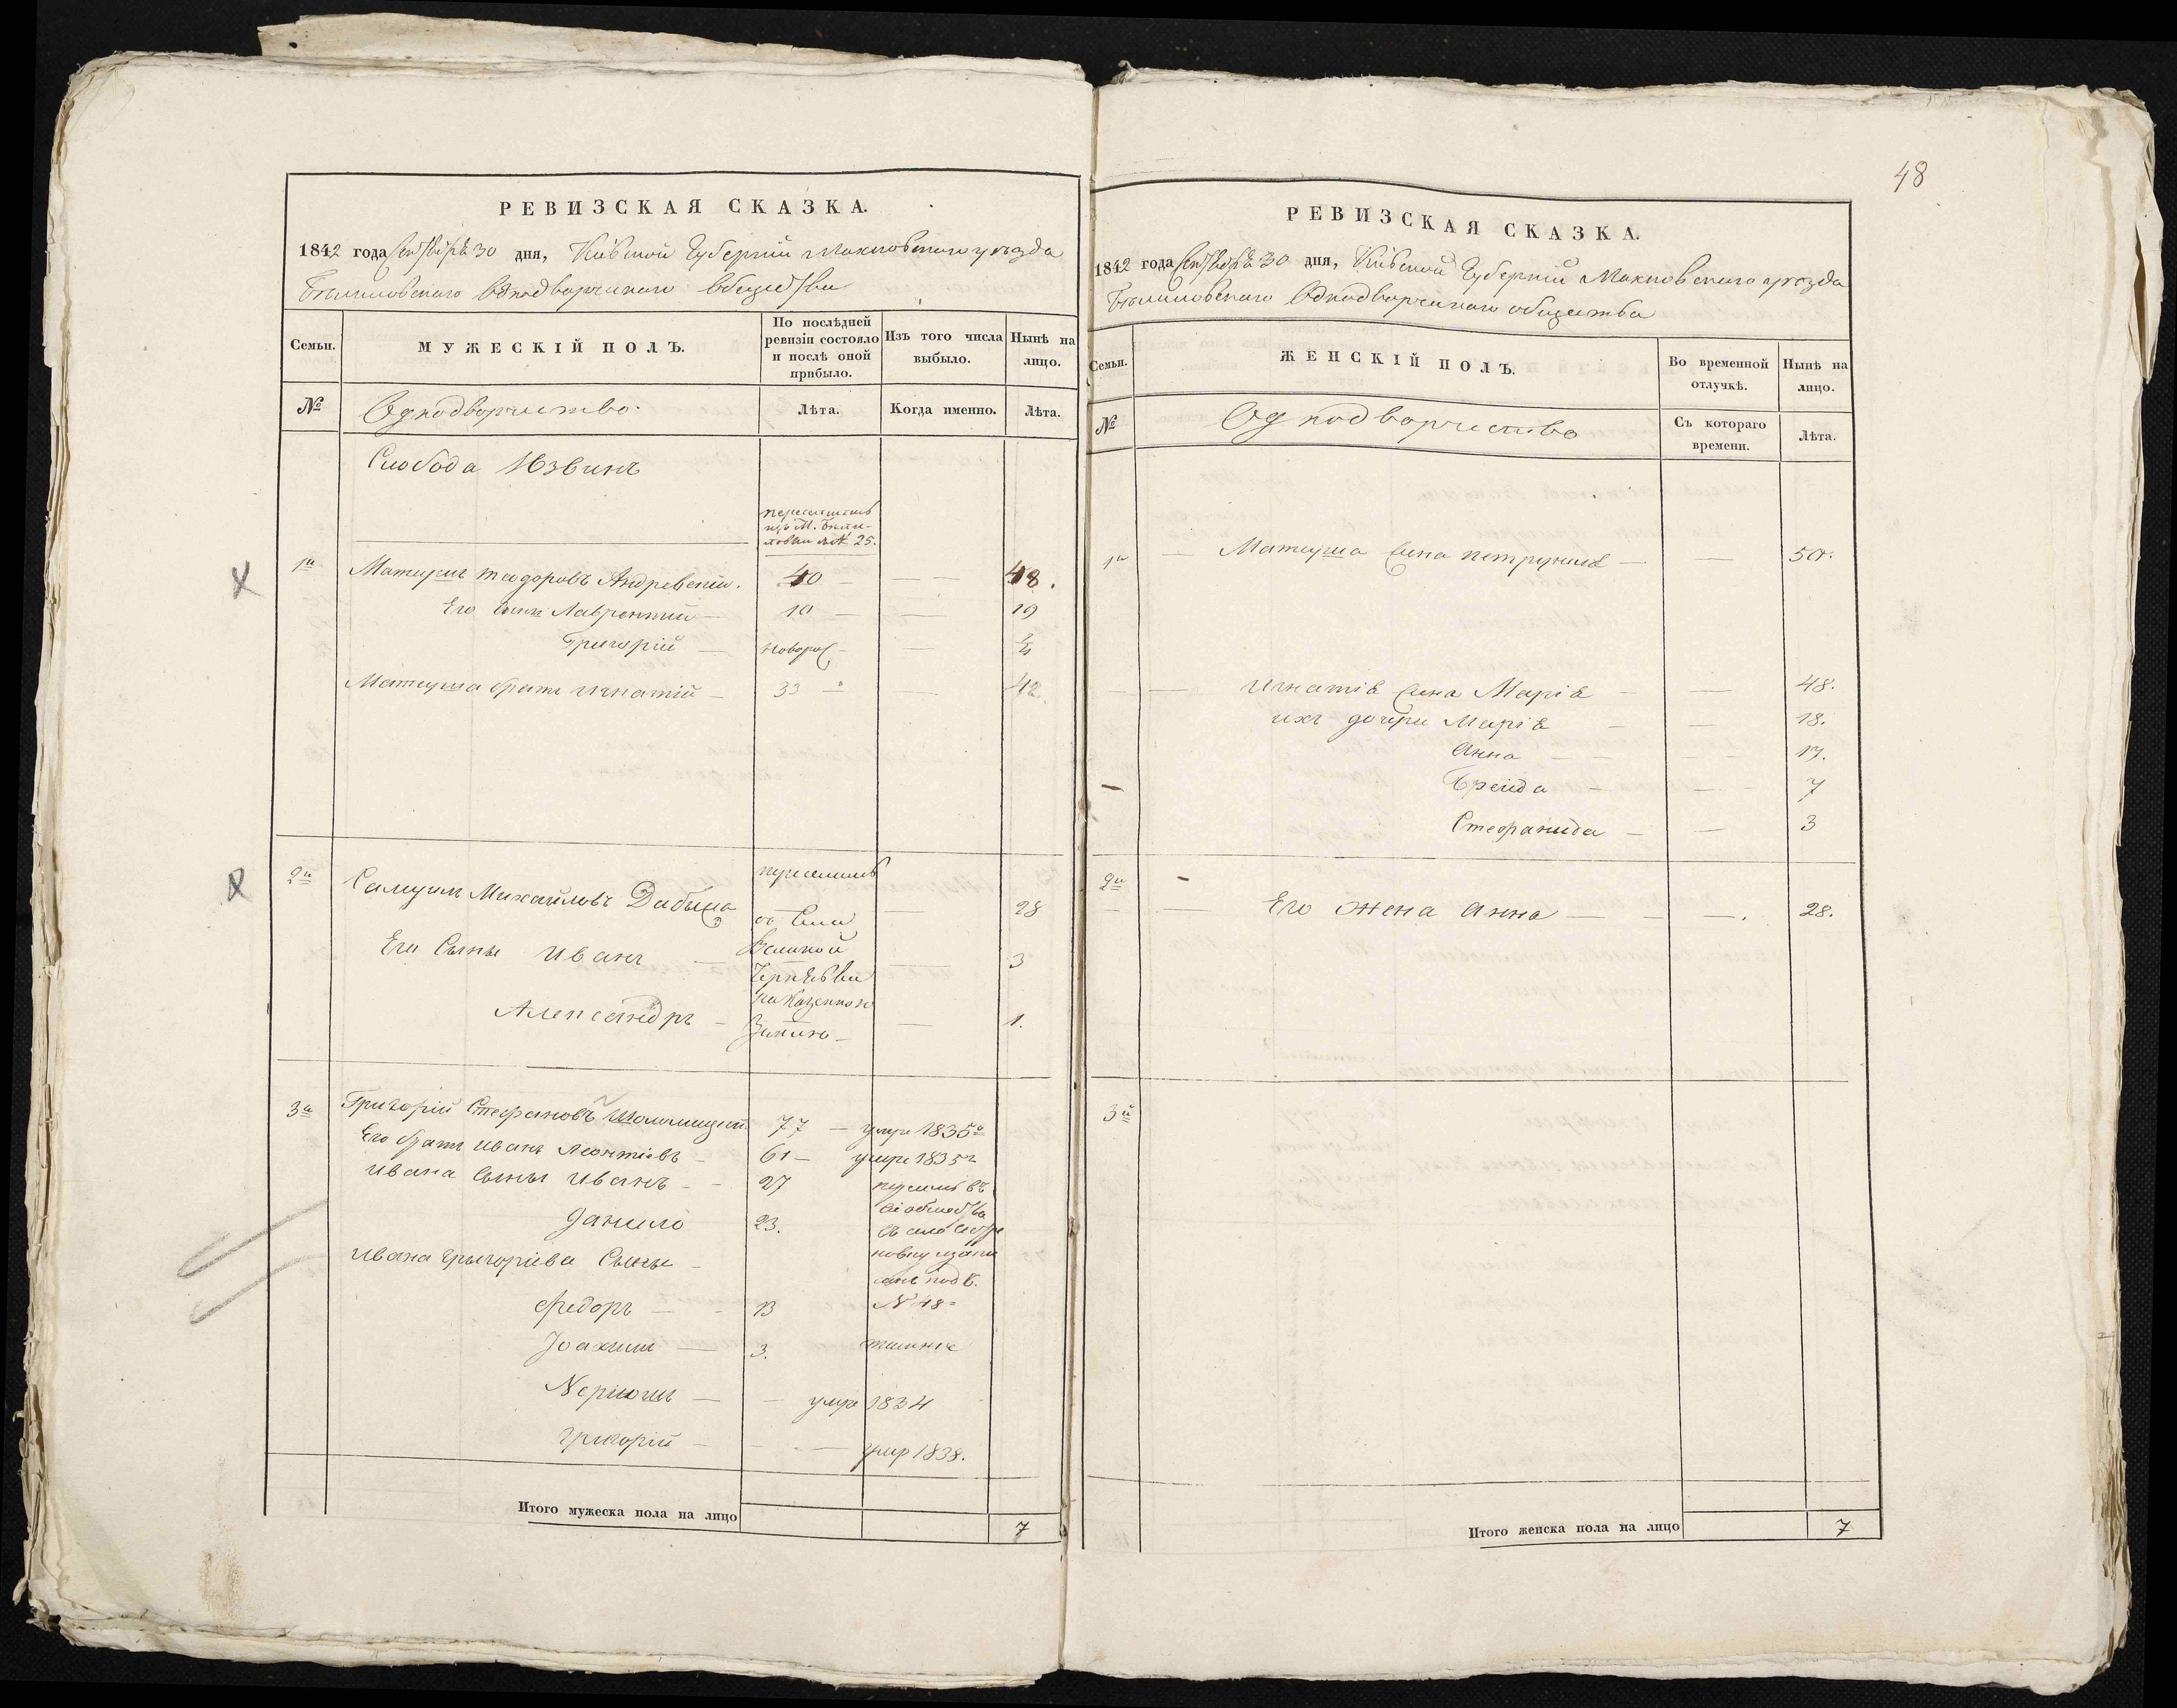 48
РЕВИЗСКАЯ СКАЗКА.
1842 года Сентября 30 дня, Кіевской Губерніи Махновскаго уезда
Бѣлиловскаго Однодворческаго Общества
Семьи.
МУЖЕСКІЙ ПОЛЪ.
По послѣдней ревизіи состояло и послѣ оной прибыло.
Изъ того числа выбыло.
Нынѣ на лицо.
№
Однодворчество.
Лѣта.
Когда именно.
Лѣта.
Слобода
из М. Бѣли-
ловки № 25.
1я
Матвушъ Теодоровъ Андревскій. 40 — — — 48.
Его сынъ Лаврентій — 10 — — 19
Григорій — новорож — — 2/4
Матвуша братъ Игнатій — 33 — — 42.
2я
Самуилъ Михайловъ Дабыжа — 28
Его Сыны Иванъ — 3
Александръ — 1.
съ Села
Великой
на казенною
Землю —
3я
Григорій Стефановъ 77 — умре 1835го
Его братъ Иванъ Леонтіевъ — 61 — умре 1835г
Ивана Сыны Иванъ — 27
Данило 23.
Ивана Григоріева Сыны —
подъ
№ 48
Федоръ — 13
Іоахимъ — 3.
— умре 1834
Григорій — — умер 1838.
Итого мужеска пола на лицо
7
РЕВИЗСКАЯ СКАЗКА.
1842 года Сентября 30 дня, Кіевской Губерніи Махновскаго уезда
Бѣлиловскаго Однодворческаго общества
Семьи.
ЖЕНСКІЙ ПОЛЪ.
Во временной отлучкѣ.
Нынѣ на лицо.
№
Однодворчество
Съ котораго времени.
Лѣта.
1я — Матвуша жена Петрунеля — — 50.
— — Игнатія жена Марія — — 48.
ихъ дочери Марія — — 18.
Анна — — 17.
7
Стефанида — — 3
2я
— — Его жена Анна — — 28.
3я
Итого женска пола на лицо
7